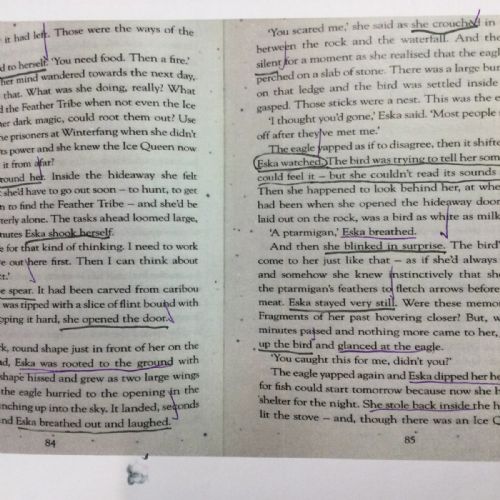 it had left. Those were the ways of the
d to herself. 'You need food. Then a fire.'
her mind wandered towards the next day,
that. What was she doing, really? What
d the Feather Tribe when not even the Ice
her dark magic, could root them out? Use
he prisoners at Winterfang when she didn't
ts power and she knew the Ice Queen now
it from afar?
round her. Inside the hideaway she felt
t she'd have to go out soon – to hunt, to get
n to find the Feather Tribe – and she'd be
terly alone. The tasks ahead loomed large,
nutes Eska shook herself.
e for that kind of thinking. I need to work
ve out here first. Then I can think about
t.'
e spear. It had been carved from caribou
was tipped with a slice of flint bound with
pping it hard, she opened the door.
k, round shape just in front of her on the
d, Eska was rooted to the ground with
shape hissed and grew as two large wings
the eagle hurried to the opening in the
nching up into the sky. It landed, seconds
nd Eska breathed out and laughed.
84
'You scared me,' she said as she crouched in
between the rock and the waterfall. And the
silent for a moment as she realised that the eagl
perched on a slab of stone. There was a large bun
on that ledge and the bird was settled inside
gasped. Those sticks were a nest. This was the e
'I thought you'd gone,' Eska said. 'Most people
off after they've met me.'
The eagle yapped as if to disagree, then it shifte
Eska watched. The bird was trying to tell her som
could feel it – but she couldn't read its sounds
Then she happened to look behind her, at who
had been when she opened the hideaway door,
laid out on the rock, was a bird as white as milk
'A ptarmigan,' Eska breathed.
And then she blinked in surprise. The bird'
come to her just like that – as if she'd always
and somehow she knew instinctively that she
the ptarmigan's feathers to fletch arrows before
meat. Eska stayed very still. Were these memor
Fragments of her past hovering closer? But, w
minutes passed and nothing more came to her,
up the bird and glanced at the eagle.
'You caught this for me, didn't you?'
The eagle yapped again and Eska dipped her he
for fish could start tomorrow because now she h
shelter for the night. She stole back inside the h
lit the stove – and, though there was an Ice Q
85